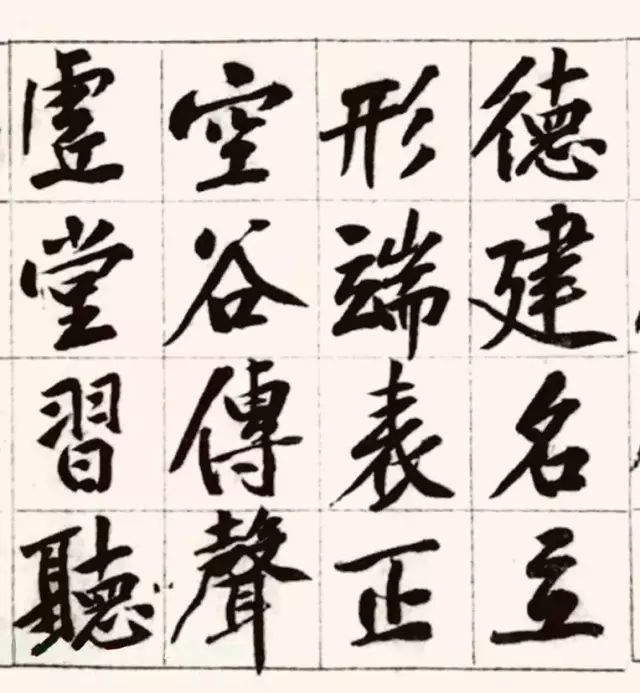 德建名立
形端表正
空谷傳聲
虛堂習聽